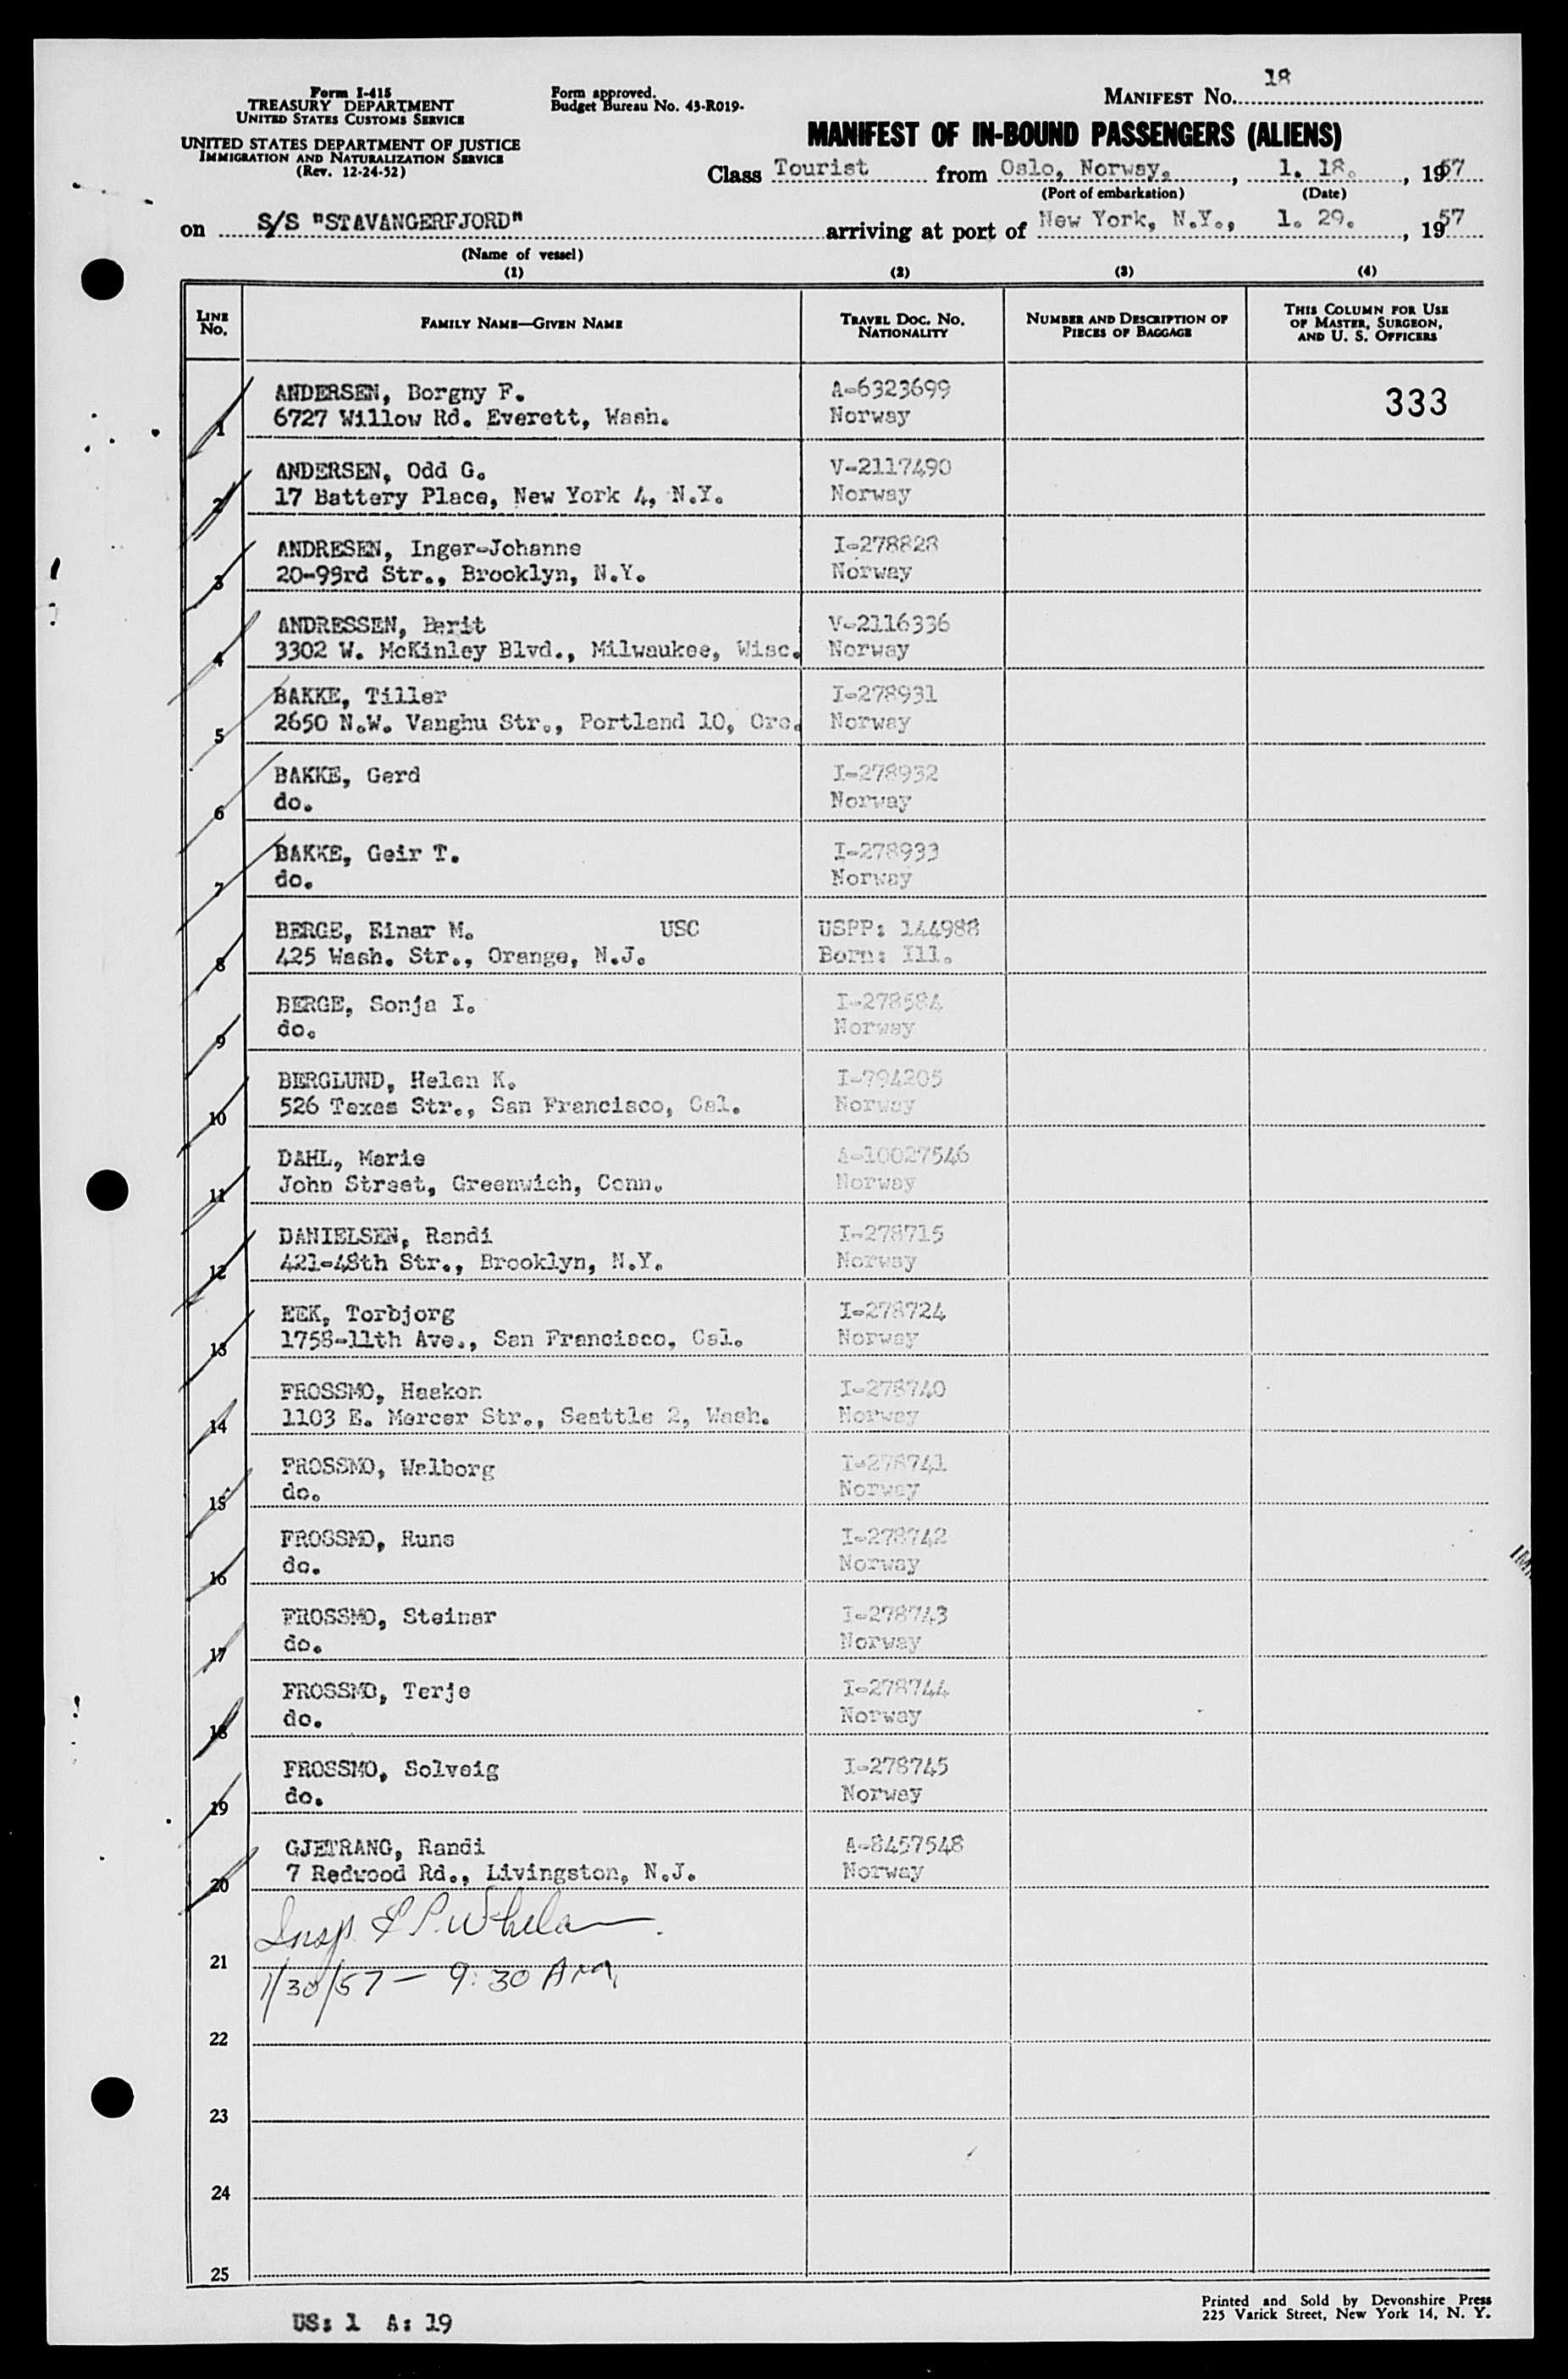 Form I-415
TREASURY DEPARTMENT
UNITED STATES CUSTOMS SERVICE
UNITED STATES DEPARTMENT OF JUSTICE
IMMIGRATION AND NATURALIZATION SERVICE
(Rev. 12-24-52)
Form approved.
Budget Bureau No. 43-R019.
MANIFEST NO. 18
MANIFEST OF IN-BOUND PASSENGERS (ALIENS)
Class Tourist from Oslo, Norway, , 1. 18. , 1957
(Port of embarkation) (Date)
on S/S "STAVANGERFJORD" arriving at port of New York, N.Y., 1. 29. , 1957
(Name of vessel)
(1) (2) (3) (4)
LINE NO. FAMILY NAME—GIVEN NAME TRAVEL DOC. NO. NATIONALITY NUMBER AND DESCRIPTION OF PIECES OF BAGGAGE THIS COLUMN FOR USE OF MASTER, SURGEON, AND U. S. OFFICERS
1 ANDERSEN, Borgny F. A-6323699 333
6727 Willow Rd. Everett, Wash. Norway
2 ANDERSEN, Odd G. V-2117490
17 Battery Place, New York 4, N.Y. Norway
3 ANDRESEN, Inger-Johanne I-278828
20-93rd Str., Brooklyn, N.Y. Norway
4 ANDRESSEN, Berit V-2116336
3302 W. McKinley Blvd., Milwaukee, Wisc. Norway
5 BAKKE, Tiller I-278931
2650 N.W. Vanghu Str., Portland 10, Ore. Norway
6 BAKKE, Gerd I-278932
do. Norway
7 BAKKE, Geir T. I-278933
do. Norway
8 BERGE, Einar M. USC USPP: 144988
425 Wash. Str., Orange, N.J. Born: Ill.
9 BERGE, Sonja I. I-278584
do. Norway
10 BERGLUND, Helen K. I-794205
526 Texas Str., San Francisco, Cal. Norway
11 DAHL, Marie A-10027546
John Street, Greenwich, Conn. Norway
12 DANIELSEN, Randi I-278715
421-48th Str., Brooklyn, N.Y. Norway
13 EEK, Torbjorg I-278724
1758-11th Ave., San Francisco, Cal. Norway
14 FROSSMO, Haakon I-278740
1103 E. Mercer Str., Seattle 2, Wash. Norway
15 FROSSMO, Walborg I-278741
do. Norway
16 FROSSMO, Rune I-278742
do. Norway
17 FROSSMO, Steinar I-278743
do. Norway
18 FROSSMO, Terje I-278744
do. Norway
19 FROSSMO, Solveig I-278745
do. Norway
20 GJETRANG, Randi A-8457548
7 Redwood Rd., Livingston, N.J. Norway
Insp E P. Whelan
21
1/30/57 — 9:30 AM
22
23
24
25
US: 1 A: 19
Printed and Sold by Devonshire Press
225 Varick Street, New York 14, N. Y.